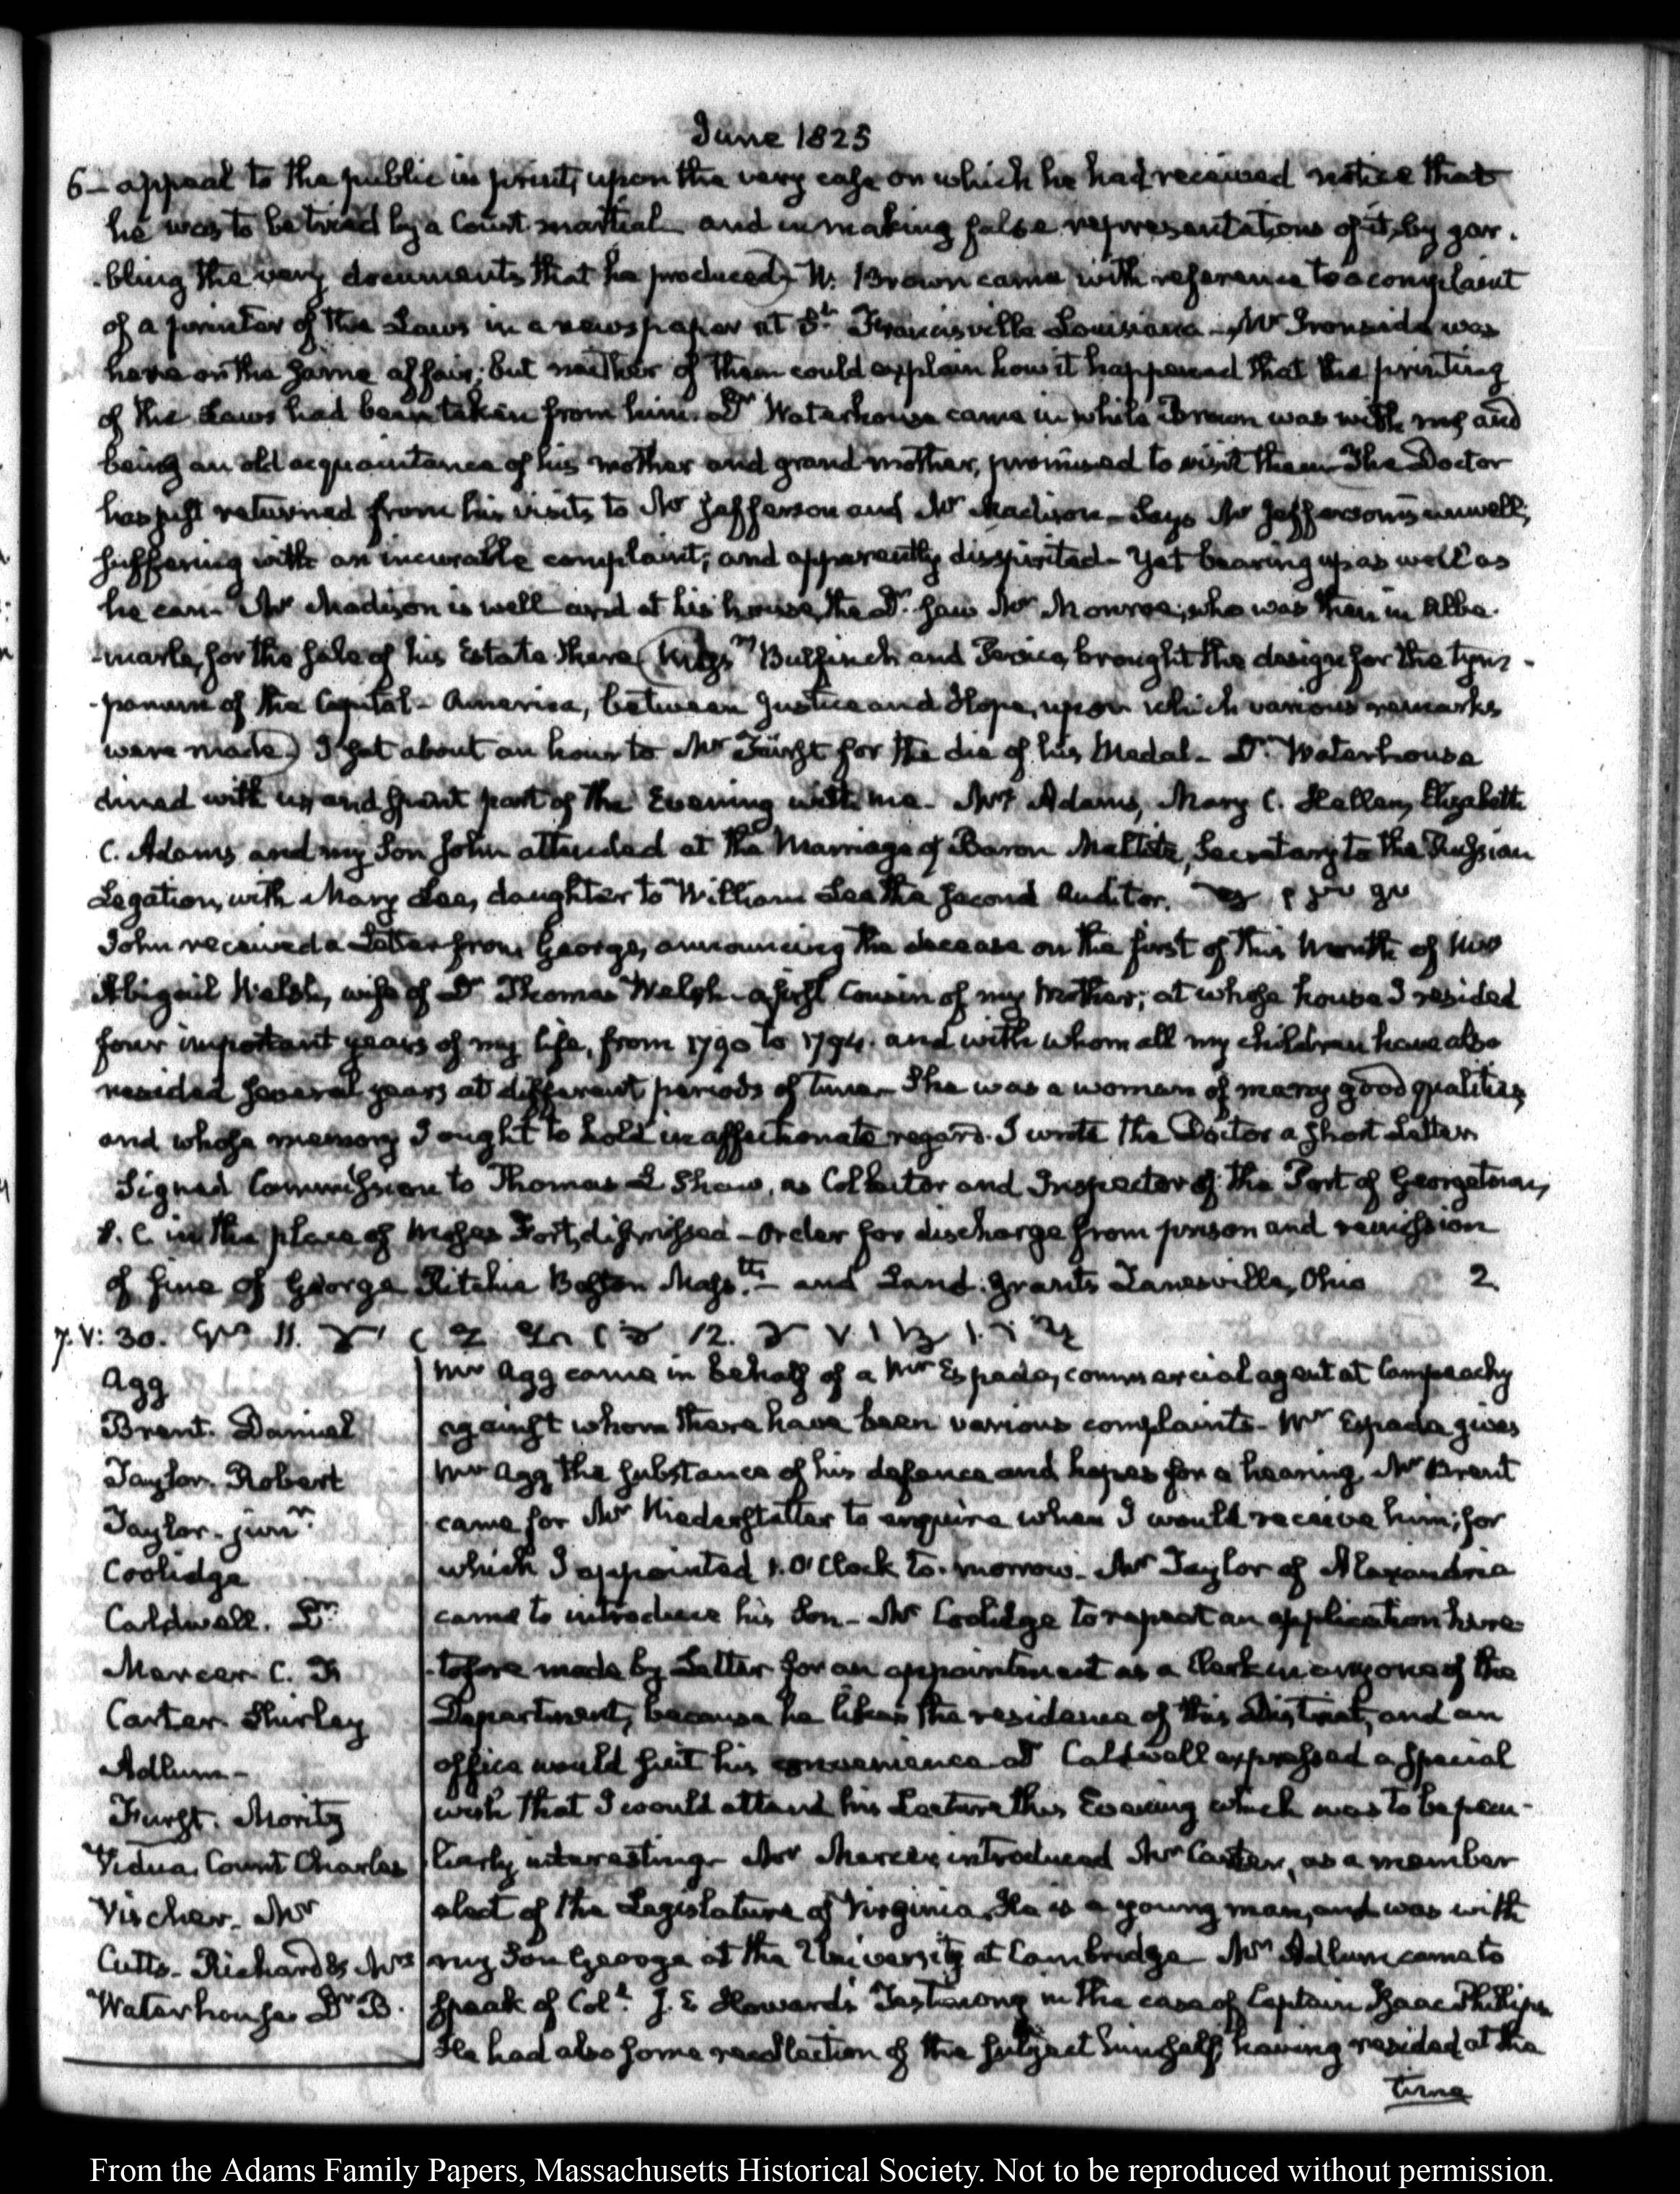 June 1825
6— appeal to the public in print, upon the very case on which he had received notice that
he was to be tried by a Court martial and in making false representations of it, by gar-
-bling the very documents that he produced) W. Brown came with reference to a complaint
of a printer of the Laws in a newspaper at St. Francisville Louisiana — Mr Ironside was
here on the same affair; but neither of them could explain how it happened that the printing
of the Laws had been taken from him. Dr Waterhouse came in while Brown was with me, and
being an old acquaintance of his mother and grand mother, promised to visit them. The Doctor
has just returned from his visits to Mr Jefferson and Mr Madison — Says Mr Jefferson is unwell;
suffering with an incurable complaint; and apparently dispirited — Yet bearing up as well as
he can. Mr Madison is well and at his house, the Dr. saw Mr Monroe, who was then in Albe-
-marle, for the sale of his Estate there. Bulfinch and Persico, brought the design for the tym-
-panum of the Capitol — America, between Justice and Hope, upon which various remarks
were made) I sat about an hour to Mr Fürst for the die of his Medal — Dr. Waterhouse
dined with us, and spent part of the Evening with me. Mrs Adams, Mary C. Hellen, Elizabeth
C. Adams and my Son John attended at the Marriage of Baron Maltitz, Secretary to the Russian
Legation, with Mary Lee, daughter to William Lee the second Auditor.
John received a Letter from George, announcing the decease on the first of this Month of Mrs
Abigail Welsh, wife of Dr Thomas Welsh — a first Cousin of my Mother; at whose house I resided
four important years of my life, from 1790 to 1794. and with whom all my children have also
resided several years at different periods of time — She was a woman of many good qualities,
and whose memory I ought to hold in affectionate regard. I wrote the Doctor a short Letter
Signed Commission to Thomas L Shaw, as Collector and Inspector of the Port of Georgetown,
S. C. in the place of Moses Fort, dismissed — Order for discharge from prison and remission
of fine of George Ritchie Boston Mass.tts — and Land grants Zanesville, Ohio 2
7. V: 30.
Agg
Brent. Daniel
Taylor. Robert
Taylor. junr.
Coolidge
Caldwell. Dr
Mercer C. F.
Carter Shirley
Adlum —
Furst. Moritz
Vidua, Count Charles
Vischer. Mr
Cutts. Richard & Mrs
Waterhouse Dr B.
Mr Agg came in behalf of a Mr Espada, commercial agent at Campeachy
against whom there have been various complaints — Mr Espada gives
Mr Agg the substance of his defence and hopes for a hearing. Mr Brent
came for Mr Niederstetter to enquire when I would receive him; for
which I appointed 1. O'Clock to-morrow. Mr Taylor of Alexandria
came to introduce his Son — Mr Coolidge to repeat an application here-
-tofore made by Letter for an appointment as a Clerk in any one of the
Department, because he likes the residence of this District, and an
office would suit his convenience. Dr Caldwell expressed a special
wish that I would attend his Lecture this Evening which was to be pecu-
liarly interesting — Mr Mercer, introduced Mr Carter, as a member
elect of the Legislature of Virginia. He is a young man, and was with
my Son George at the University at Cambridge — Mr Adlum came to
speak of Coll. J. E Howard's Testimony in the case of Captain Isaac Phillips
He had also some recollection of the subject himself, having resided at the
time
From the Adams Family Papers, Massachusetts Historical Society. Not to be reproduced without permission.